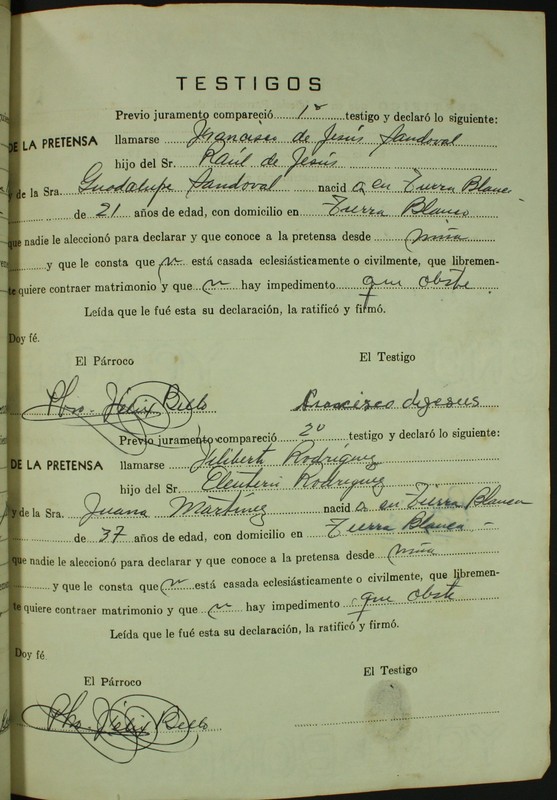 TESTIGOS
Previo juramento compareció 1º testigo y declaró lo siguiente:
DE LA PRETENSA llamarse Francisco de Jesús Sandoval
hijo del Sr. Raúl de Jesús
y de la Sra. Guadalupe Sandoval nacid o en Tierra Blanca
de 21 años de edad, con domicilio en Tierra Blanca
que nadie le aleccionó para declarar y que conoce a la pretensa desde niña
y que le consta que no está casada eclesiásticamente o civilmente, que libremen-
te quiere contraer matrimonio y que no hay impedimento que obste.
Leída que le fué esta su declaración, la ratificó y firmó.
Doy fé.
El Párroco El Testigo
Pbro. Félix Bello Francisco de jesus
Previo juramento compareció 2º testigo y declaró lo siguiente:
DE LA PRETENSA llamarse Filiberto Rodríguez
hijo del Sr. Eleuterio Rodríguez
y de la Sra. Juana Martínez nacid o en Tierra Blanca
de 37 años de edad, con domicilio en Tierra Blanca
que nadie le aleccionó para declarar y que conoce a la pretensa desde niña
y que le consta que no está casada eclesiásticamente o civilmente, que libremen-
te quiere contraer matrimonio y que no hay impedimento que obste
Leída que le fué esta su declaración, la ratificó y firmó.
Doy fé
El Párroco El Testigo
Pbro. Félix Bello